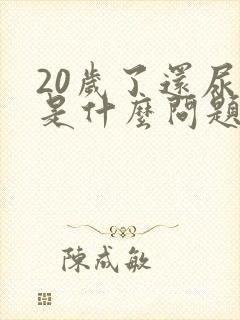 20歲了還尿
是什麼問題
陳成敏